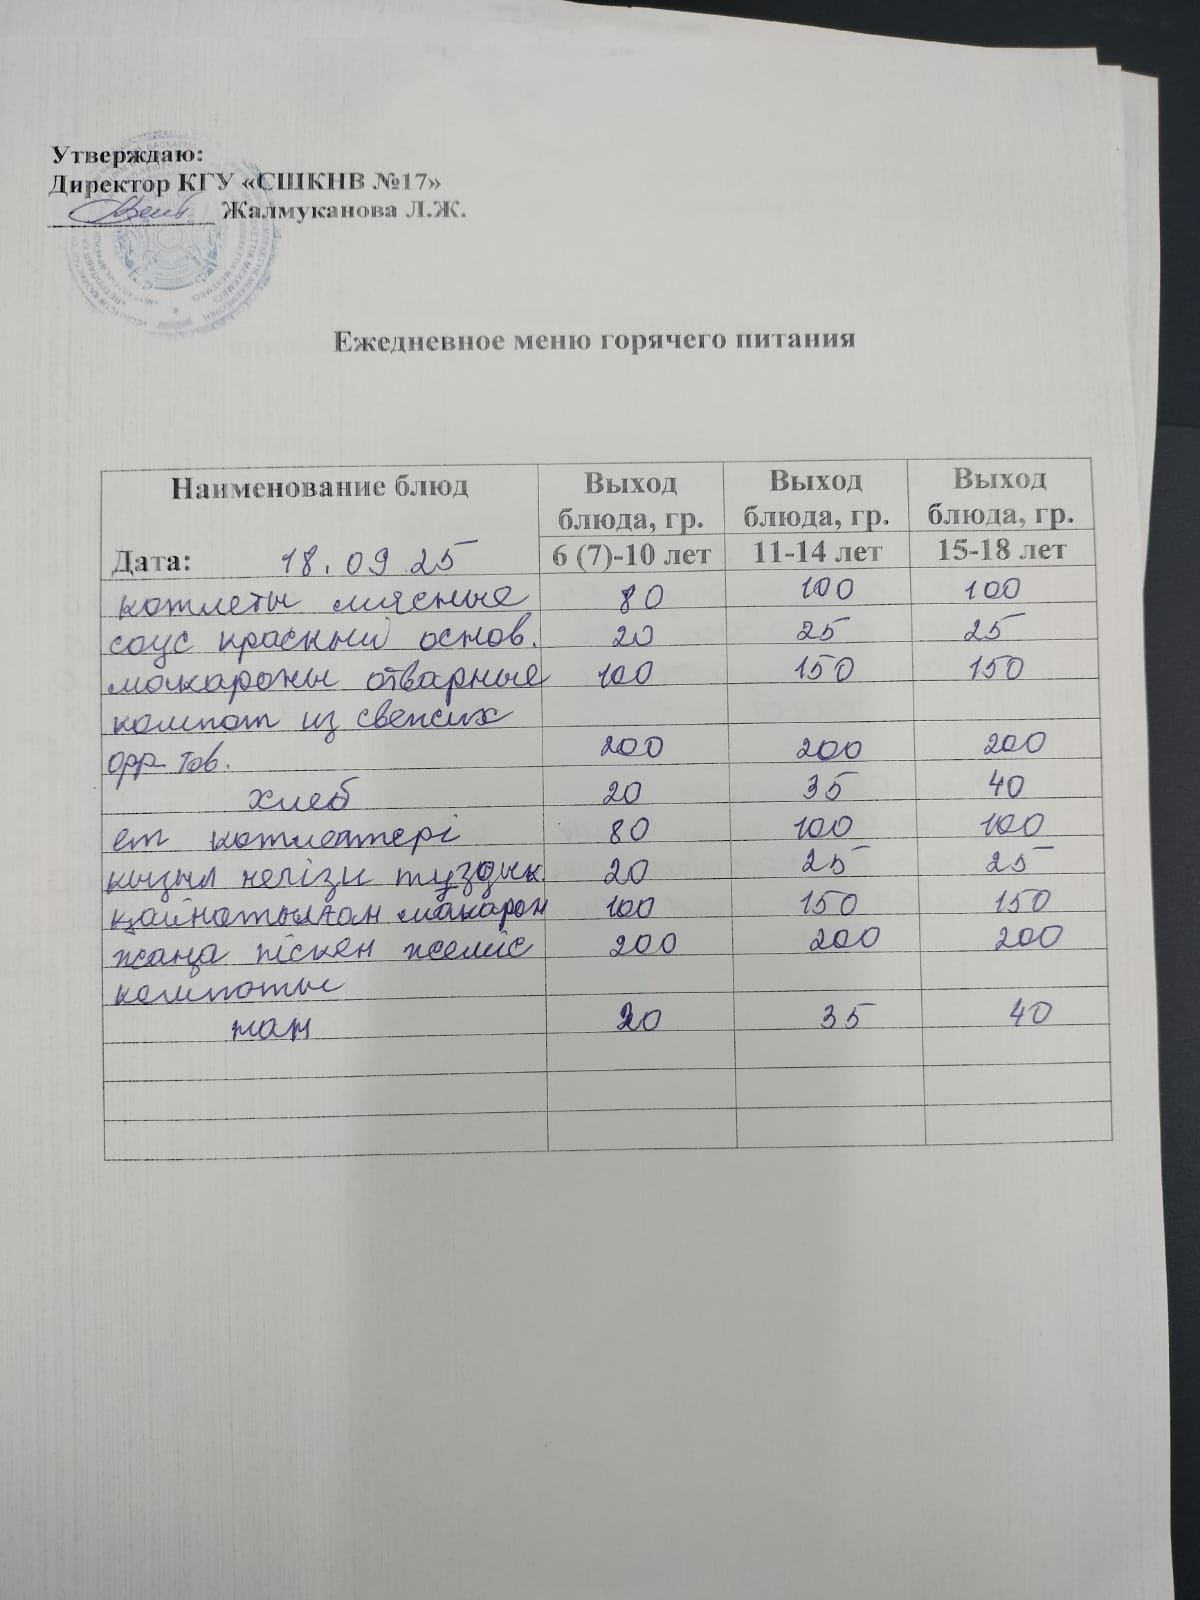 Утверждаю:
Директор КГУ «СШКНВ №17»
Жалмуканова Л.Ж.
Ежедневное меню горячего питания
Наименование блюд Выход блюда, гр. Выход блюда, гр. Выход блюда, гр.
Дата: 18.09.25 6 (7)-10 лет 11-14 лет 15-18 лет
котлеты мясные 80 100 100
соус красный основ. 20 25 25
макароны отварные 100 150 150
компот из свежих
200 200 200
хлеб 20 35 40
ет котлеттері 80 100 100
кызыл негізи туздык 20 25 25
қайнатылған макарон 100 150 150
жаңа піскен жеміс 200 200 200
компоты
нан 20 35 40